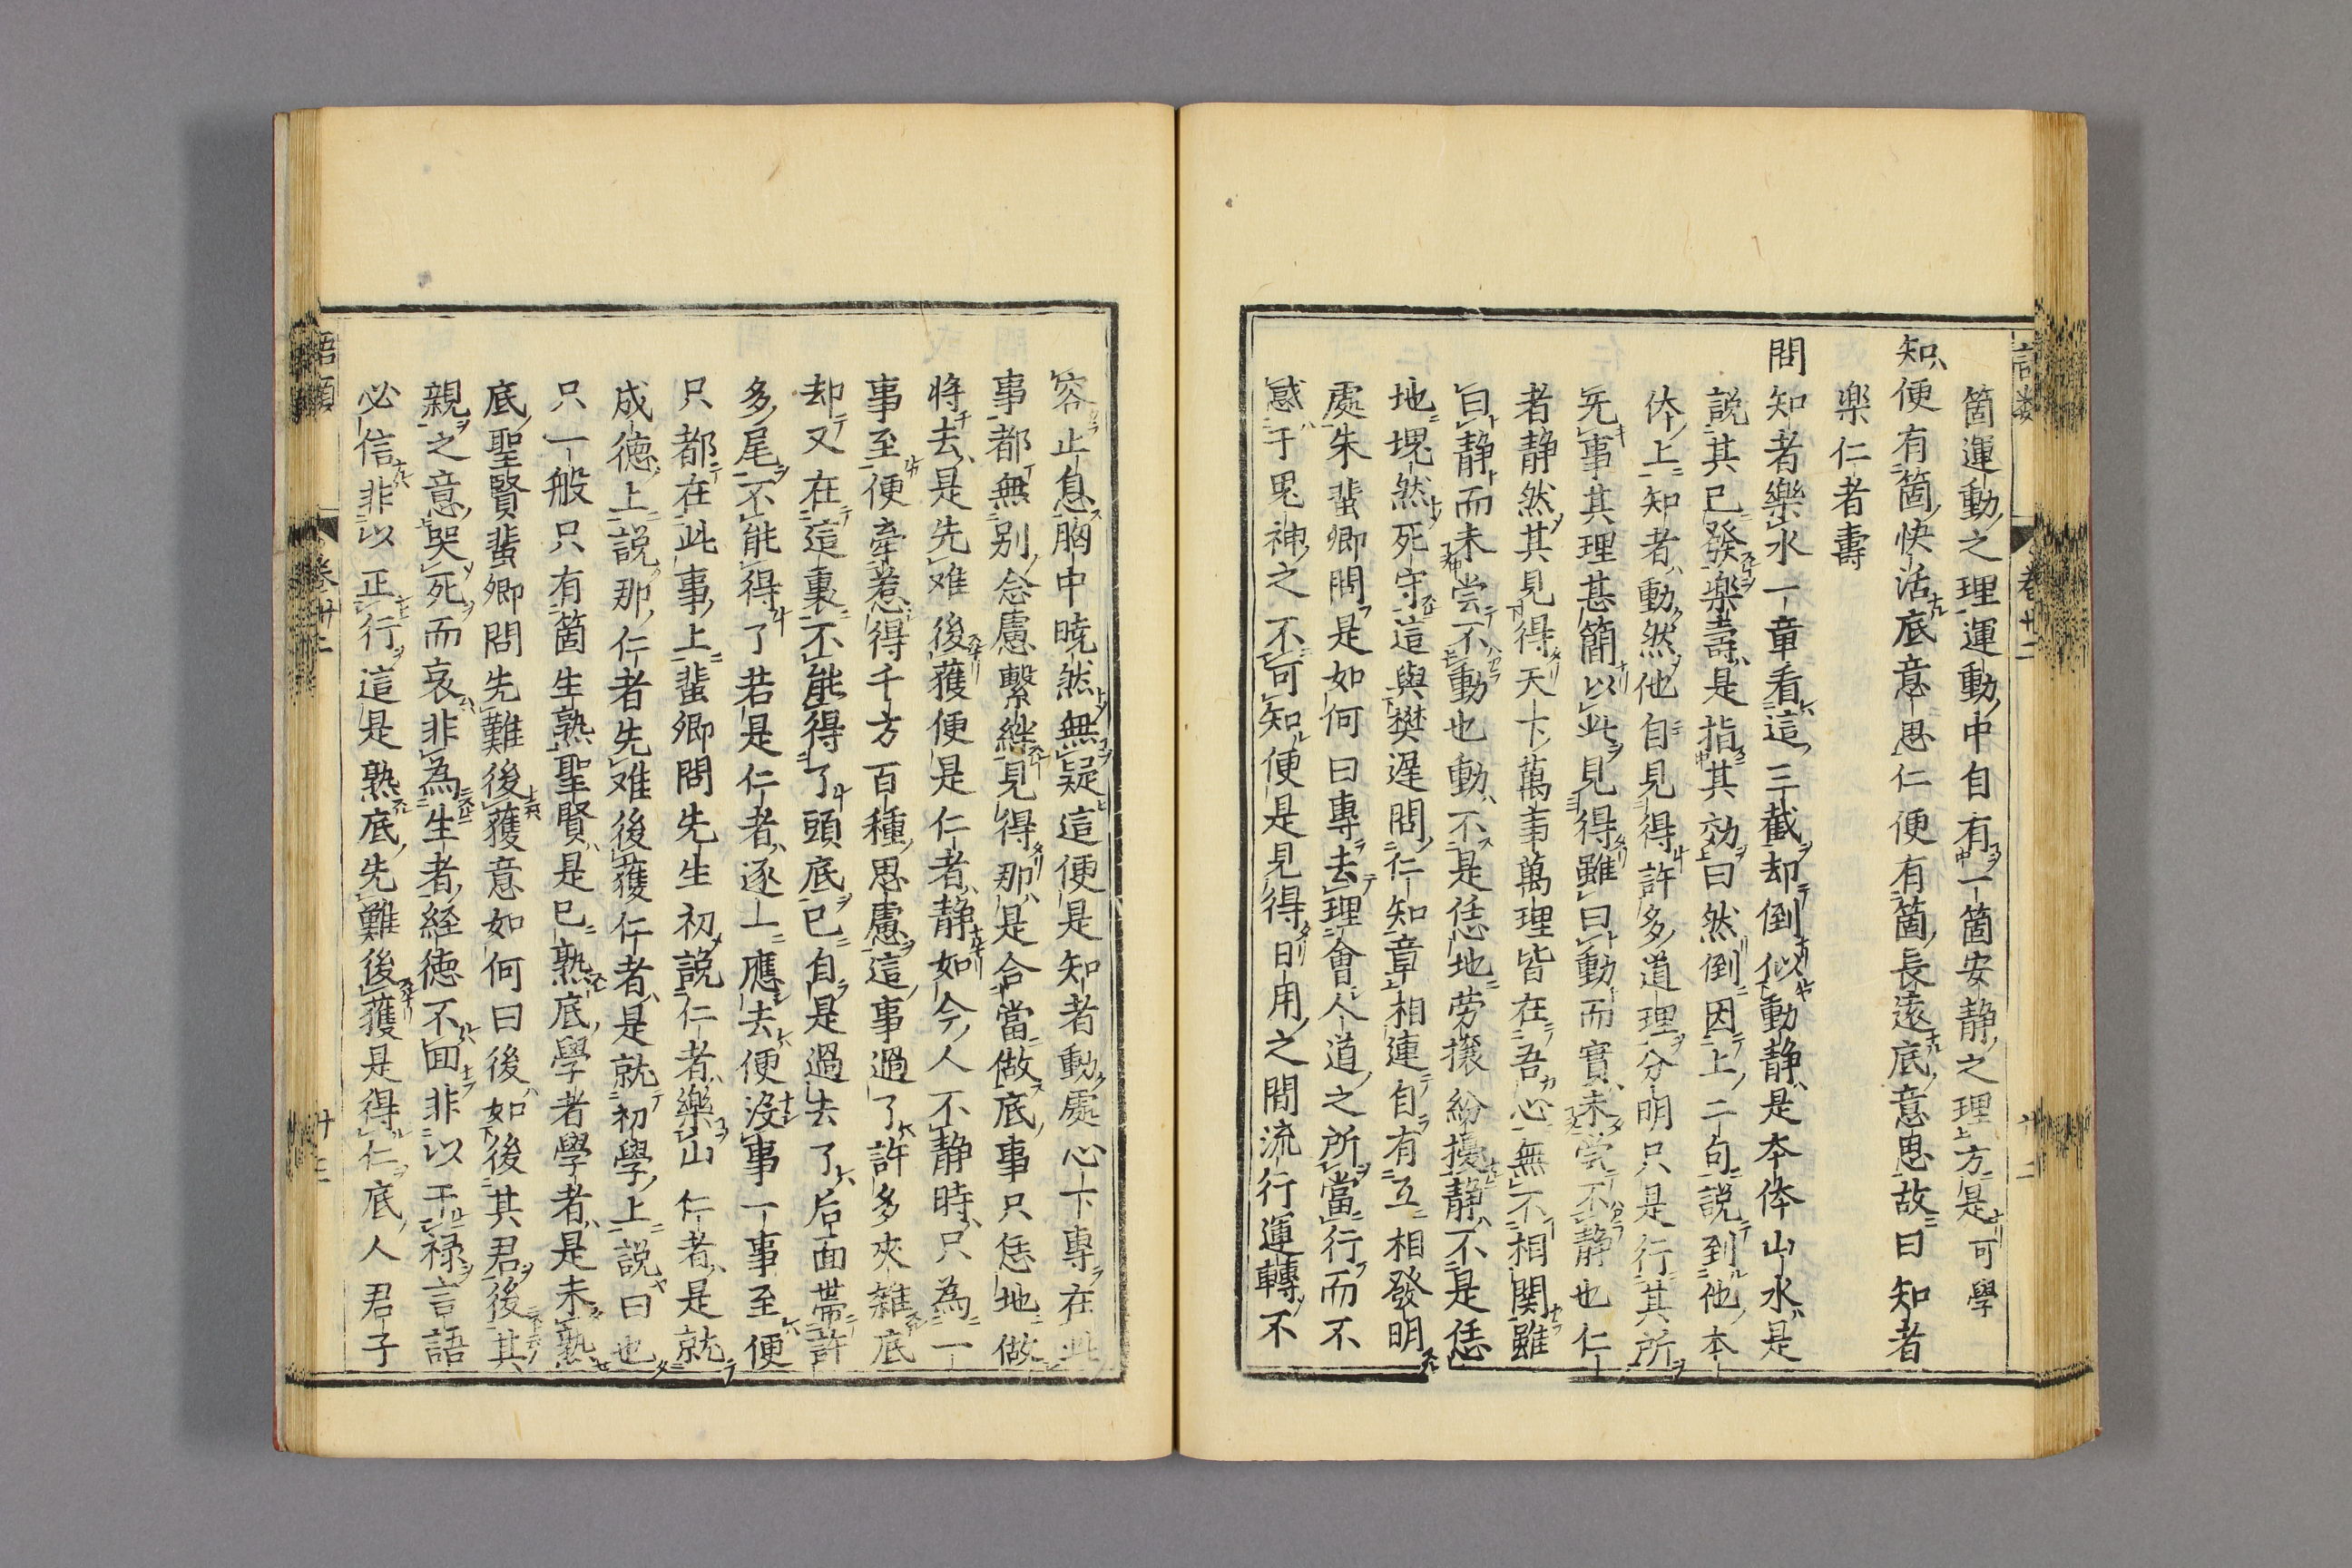 箇運動之理運動中自有一箇安静之理方是可學
知便有箇快活底意思仁便有箇長遠底意思故曰知者
楽仁者壽
問知者樂水一章看這三截却倒似動静是本体山水是
説其已發楽壽是指其効曰然倒因上二句説到他本
体上知者動然他自見得許多道理分明只是行其所
无事其理甚簡以此見得雖曰動而實未嘗不静也仁
者静然其見得天下萬事萬理皆在吾心無不相関雖
曰静而未嘗不動也動不是恁地劳攘紛擾静不是恁
地塊然死守這與樊遅問仁知章相連自有互相發明
處朱蜚卿問是如何曰專去理會人道之所當行而不
惑于鬼神之不可知便是見得日用之間流行運轉不
容止息胸中暁然無疑這便是知者動處心下專在此
事都無别念慮繫絆見得那是合當做底事只恁地做
将去是先难後獲便是仁者静如今人不静時只為一
事至便牽惹得千方百種思慮這事過了許多夾雑底
却又在這裏不能得了頭底已自是過去了后面帯許
多尾不能得了若是仁者逐一應去便没事一事至便
只都在此事上蜚卿問先生初説仁者樂山仁者是就
成徳上説那仁者先难後獲仁者是就初學上説曰也
只一般只有箇生熟聖賢是已熟底學者學者是未熟
底聖賢蜚卿問先難後獲意如何曰後如後其君後其
親之意哭死而哀非為生者経徳不回非以干禄言語
必信非以正行這是熟底先難後獲是得仁底人君子
語類
卷卅二
廿三